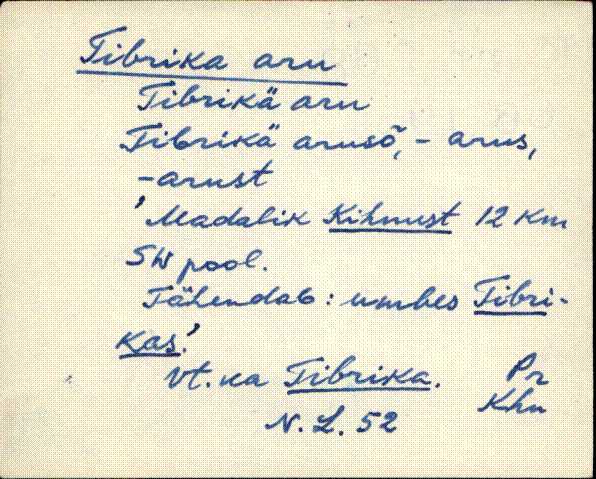 Tibrika aru
Tibrikä aru
Tibrikä arusõ, - arus,
-arust
'Madalik Kihnust 12 km
SW pool.
Tähendab: umbes Tibri-
kas.'
Vt. ka Tibrika. Pr
N. L. 52 Khn